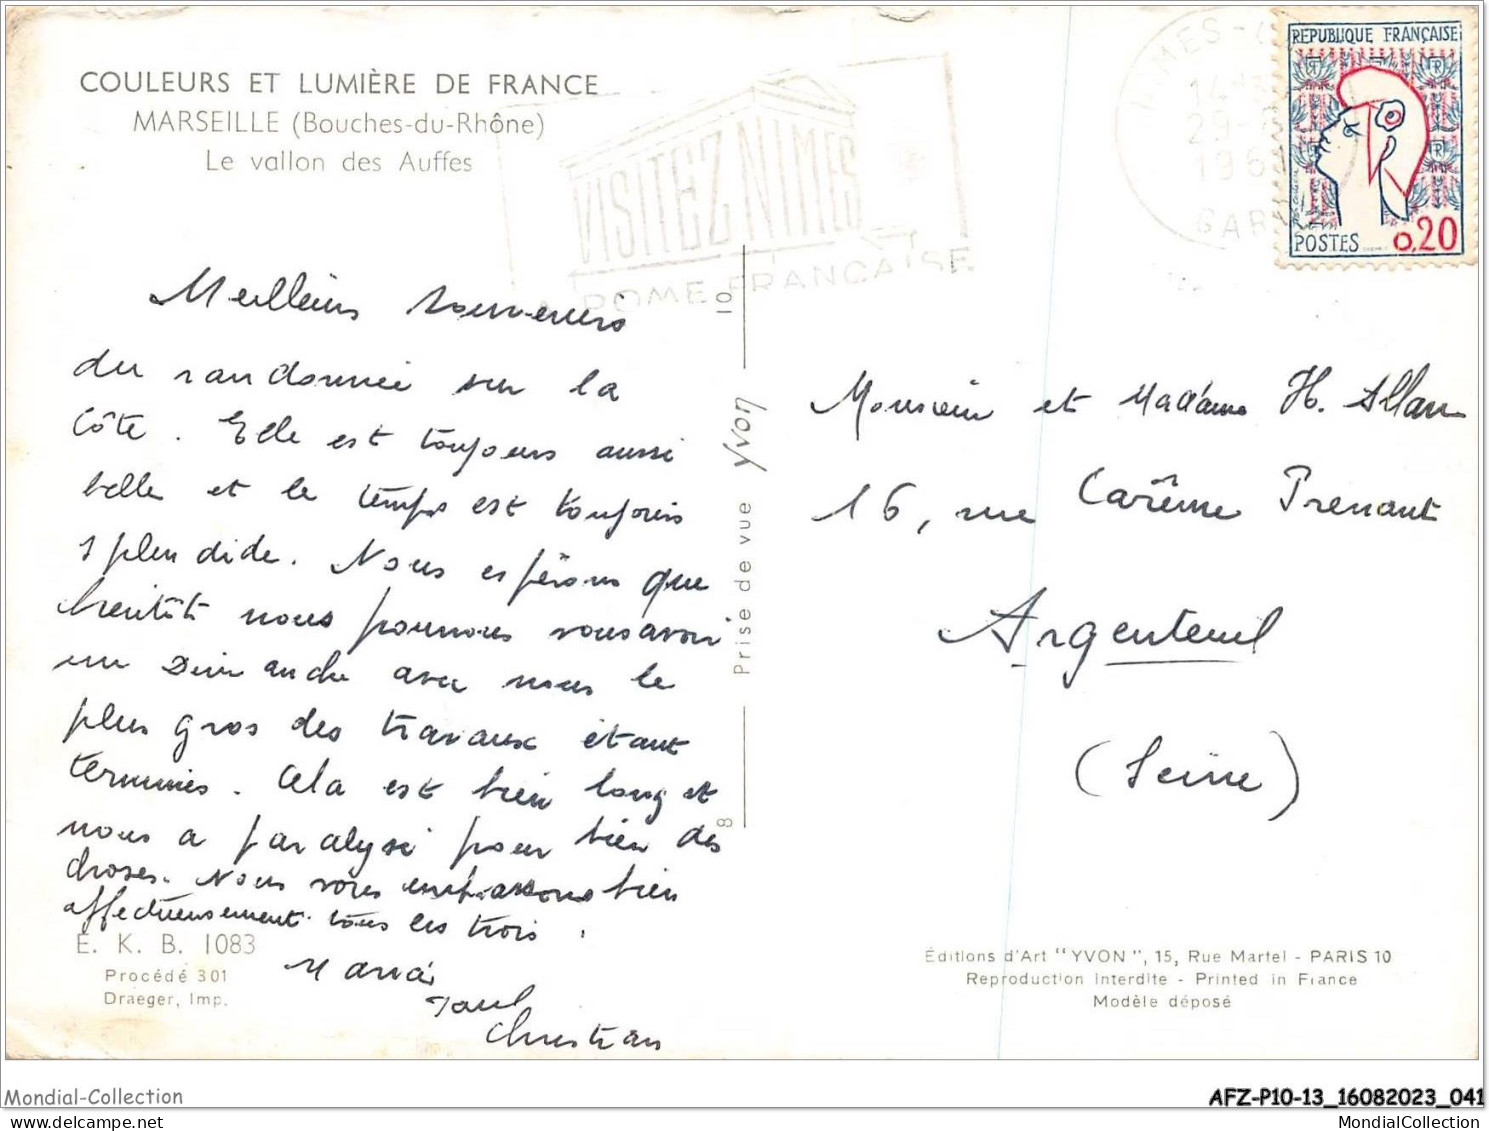 COULEURS ET LUMIÈRE DE FRANCE
MARSEILLE (Bouches-du-Rhône)
Le vallon des Auffes
VISITEZ NIMES
LA ROME FRANÇAISE
NIMES
14H30
29-
196
GARD
REPUBLIQUE FRANÇAISE
POSTES 0,20
Meilleurs souvenirs
du randonnée sur la
Côte. Elle est toujours aussi
belle et le temps est toujours
splendide. Nous espérons que
bientôt nous pourrons vous avoir
un Dimanche avec nous le
plus gros des travaux étant
terminés. Cela est bien long et
nous a paralysé pour bien des
choses. Nous vous embrassons bien
affectueusement tous les trois.
Maria
Paul
Christian
E. K. B. 1083
Procédé 301
Draeger, Imp.
8 Prise de vue Yvon 10
Monsieur et Madame H. Allan
16, rue Carême Prenant
Argenteuil
(Seine)
Éditions d'Art "YVON", 15, Rue Martel - PARIS 10
Reproduction Interdite - Printed in France
Modèle déposé
Mondial-Collection
delcampe.net
AFZ-P10-13_16082023_041
MondialCollection